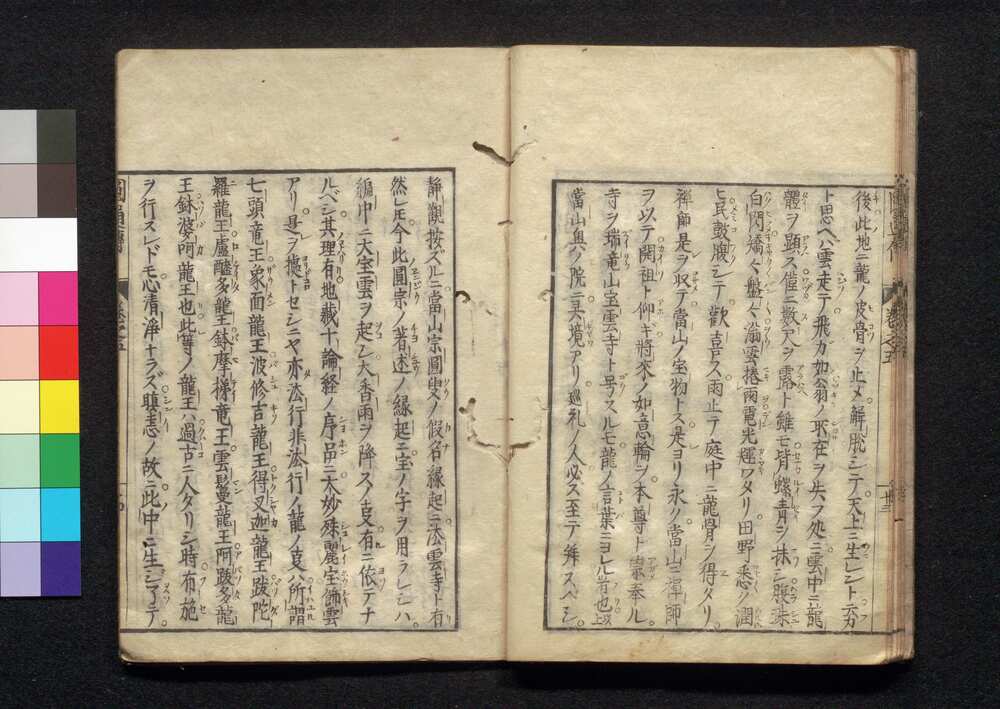 後此地ニ龍ノ皮骨ヲ止メ解脱シテ天上ニ生シント云カ
ト思ヘハ雲走テ飛カ如翁ノ所在ヲ失フ処ニ雲中ニ龍
體ヲ顕ス僅ニ数尺ヲ露ト雖モ皆螺青ヲ抹シ腹珠
白閃矯々盤々滃雲捲雨電光輝ワタリ田野悉ク潤
ヒ民鼓腹シテ歓喜ス雨止テ庭中ニ龍骨ヲ得タリ
禅師是ヲ収テ當山ノ宝物トス是ヨリ永ク當山ニ禅師
ヲ以テ開祖ト仰キ将来ノ如意輪ヲ本尊ト崇奉ル
寺ヲ瑞竜山宝雲寺ト号スルモ龍ノ言葉ニヨレル者也
當山奥ノ院ニ其境アリ巡礼ノ人必ス至テ拜スベシ
静觀按ズルニ當山宗圓叟ノ假名縁起ニ法雲寺ト有
然レモ今此圓宗ノ著述ノ縁起ニ宝ノ字ヲ用ラレシハ
編中ニ大宝雲ヲ起シ大香雨ヲ降スノ㕝有ニ依テナ
ルベシ其理有地蔵十論経ノ序品ニ大妙殊麗宝飾雲
アリ是ヲ據トセシニヤ亦法行非法行ノ龍ノ㕝ハ所謂
七頭竜王象面龍王波修吉龍王得叉迦龍王跋陀
羅龍王盧醯多龍王鉢摩梯竜王雲鬘龍王阿跋多龍
王鉢婆呵龍王也此等ノ龍王ハ過古ニ人タリシ時布施
ヲ行スレドモ志清浄ナラズ瞋恚ノ故ニ此中ニ生シマテ